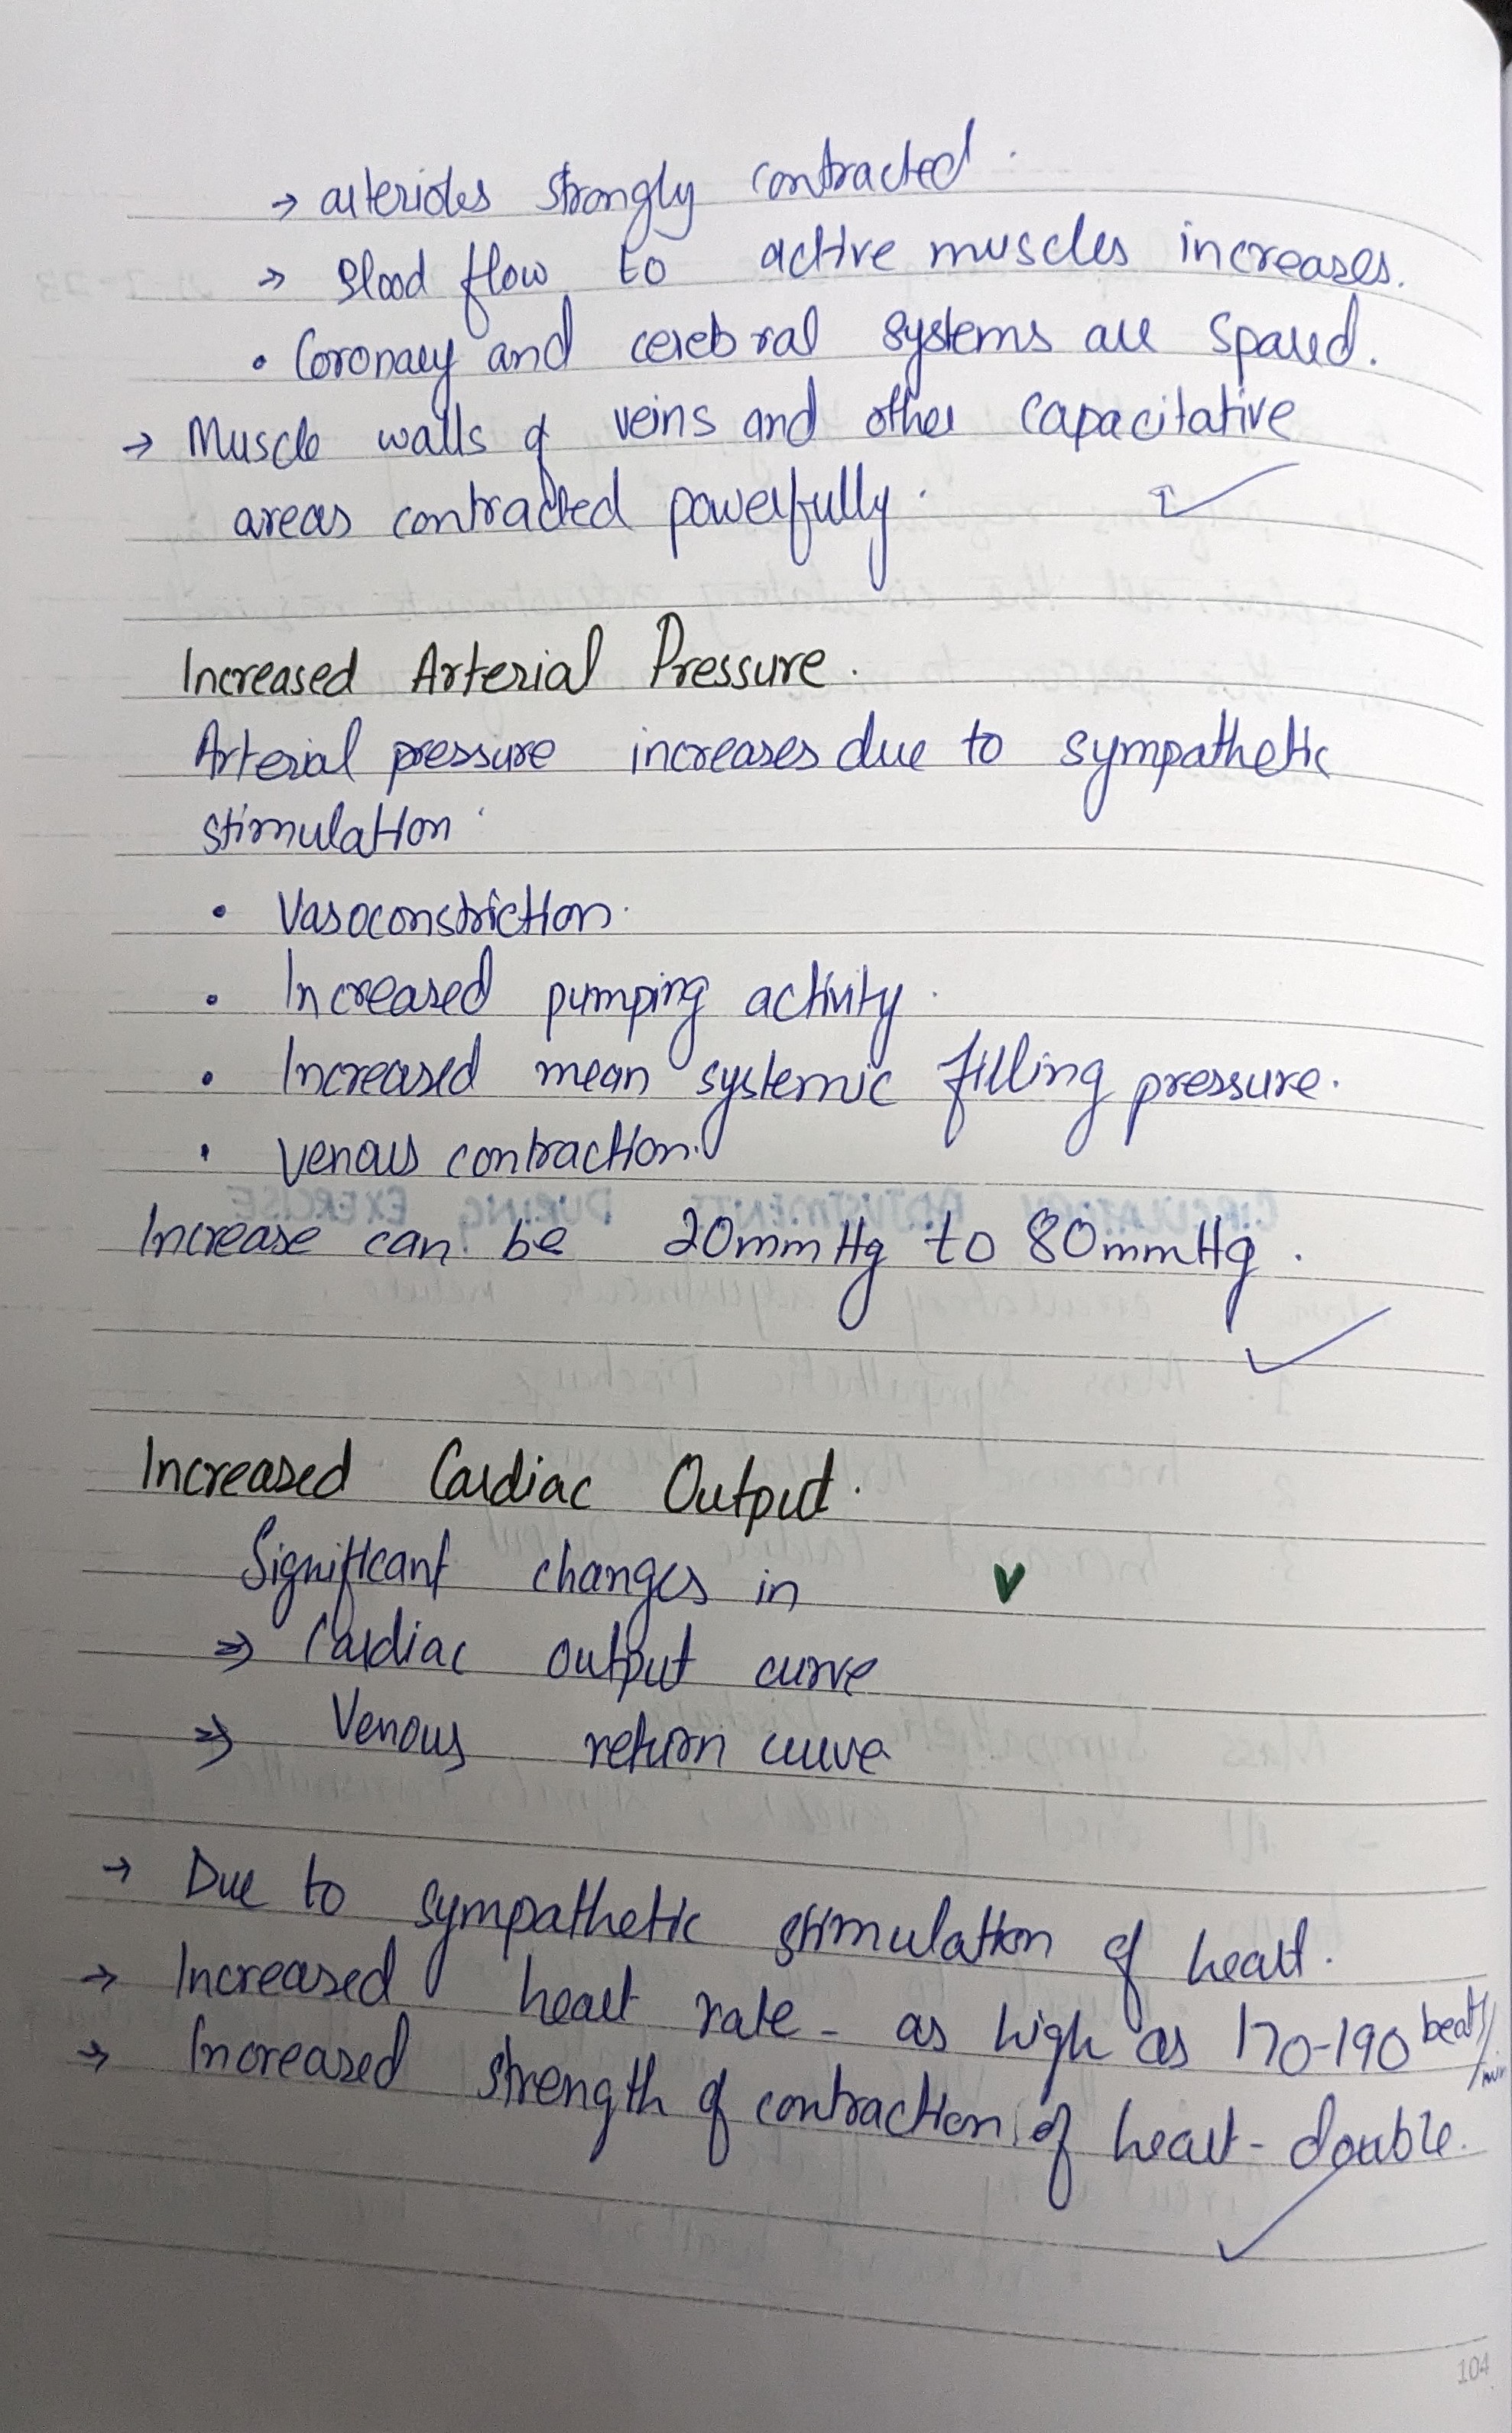 → arterioles strongly contracted.
→ Blood flow to active muscles increases.
• Coronary and cerebral systems are spared.
→ Muscle walls of veins and other capacitative
areas contracted powerfully.
Increased Arterial Pressure.
Arterial pressure increases due to sympathetic
stimulation.
• Vasoconstriction.
• Increased pumping activity.
• Increased mean systemic filling pressure.
• venous contraction.
Increase can be 20mmHg to 80mmHg.
Increased Cardiac Output.
Significant changes in
⇒ Cardiac output curve
⇒ Venous return curve
→ Due to sympathetic stimulation of heart.
→ Increased heart rate - as high as 170-190 beats/min
→ Increased strength of contraction of heart - double.
104